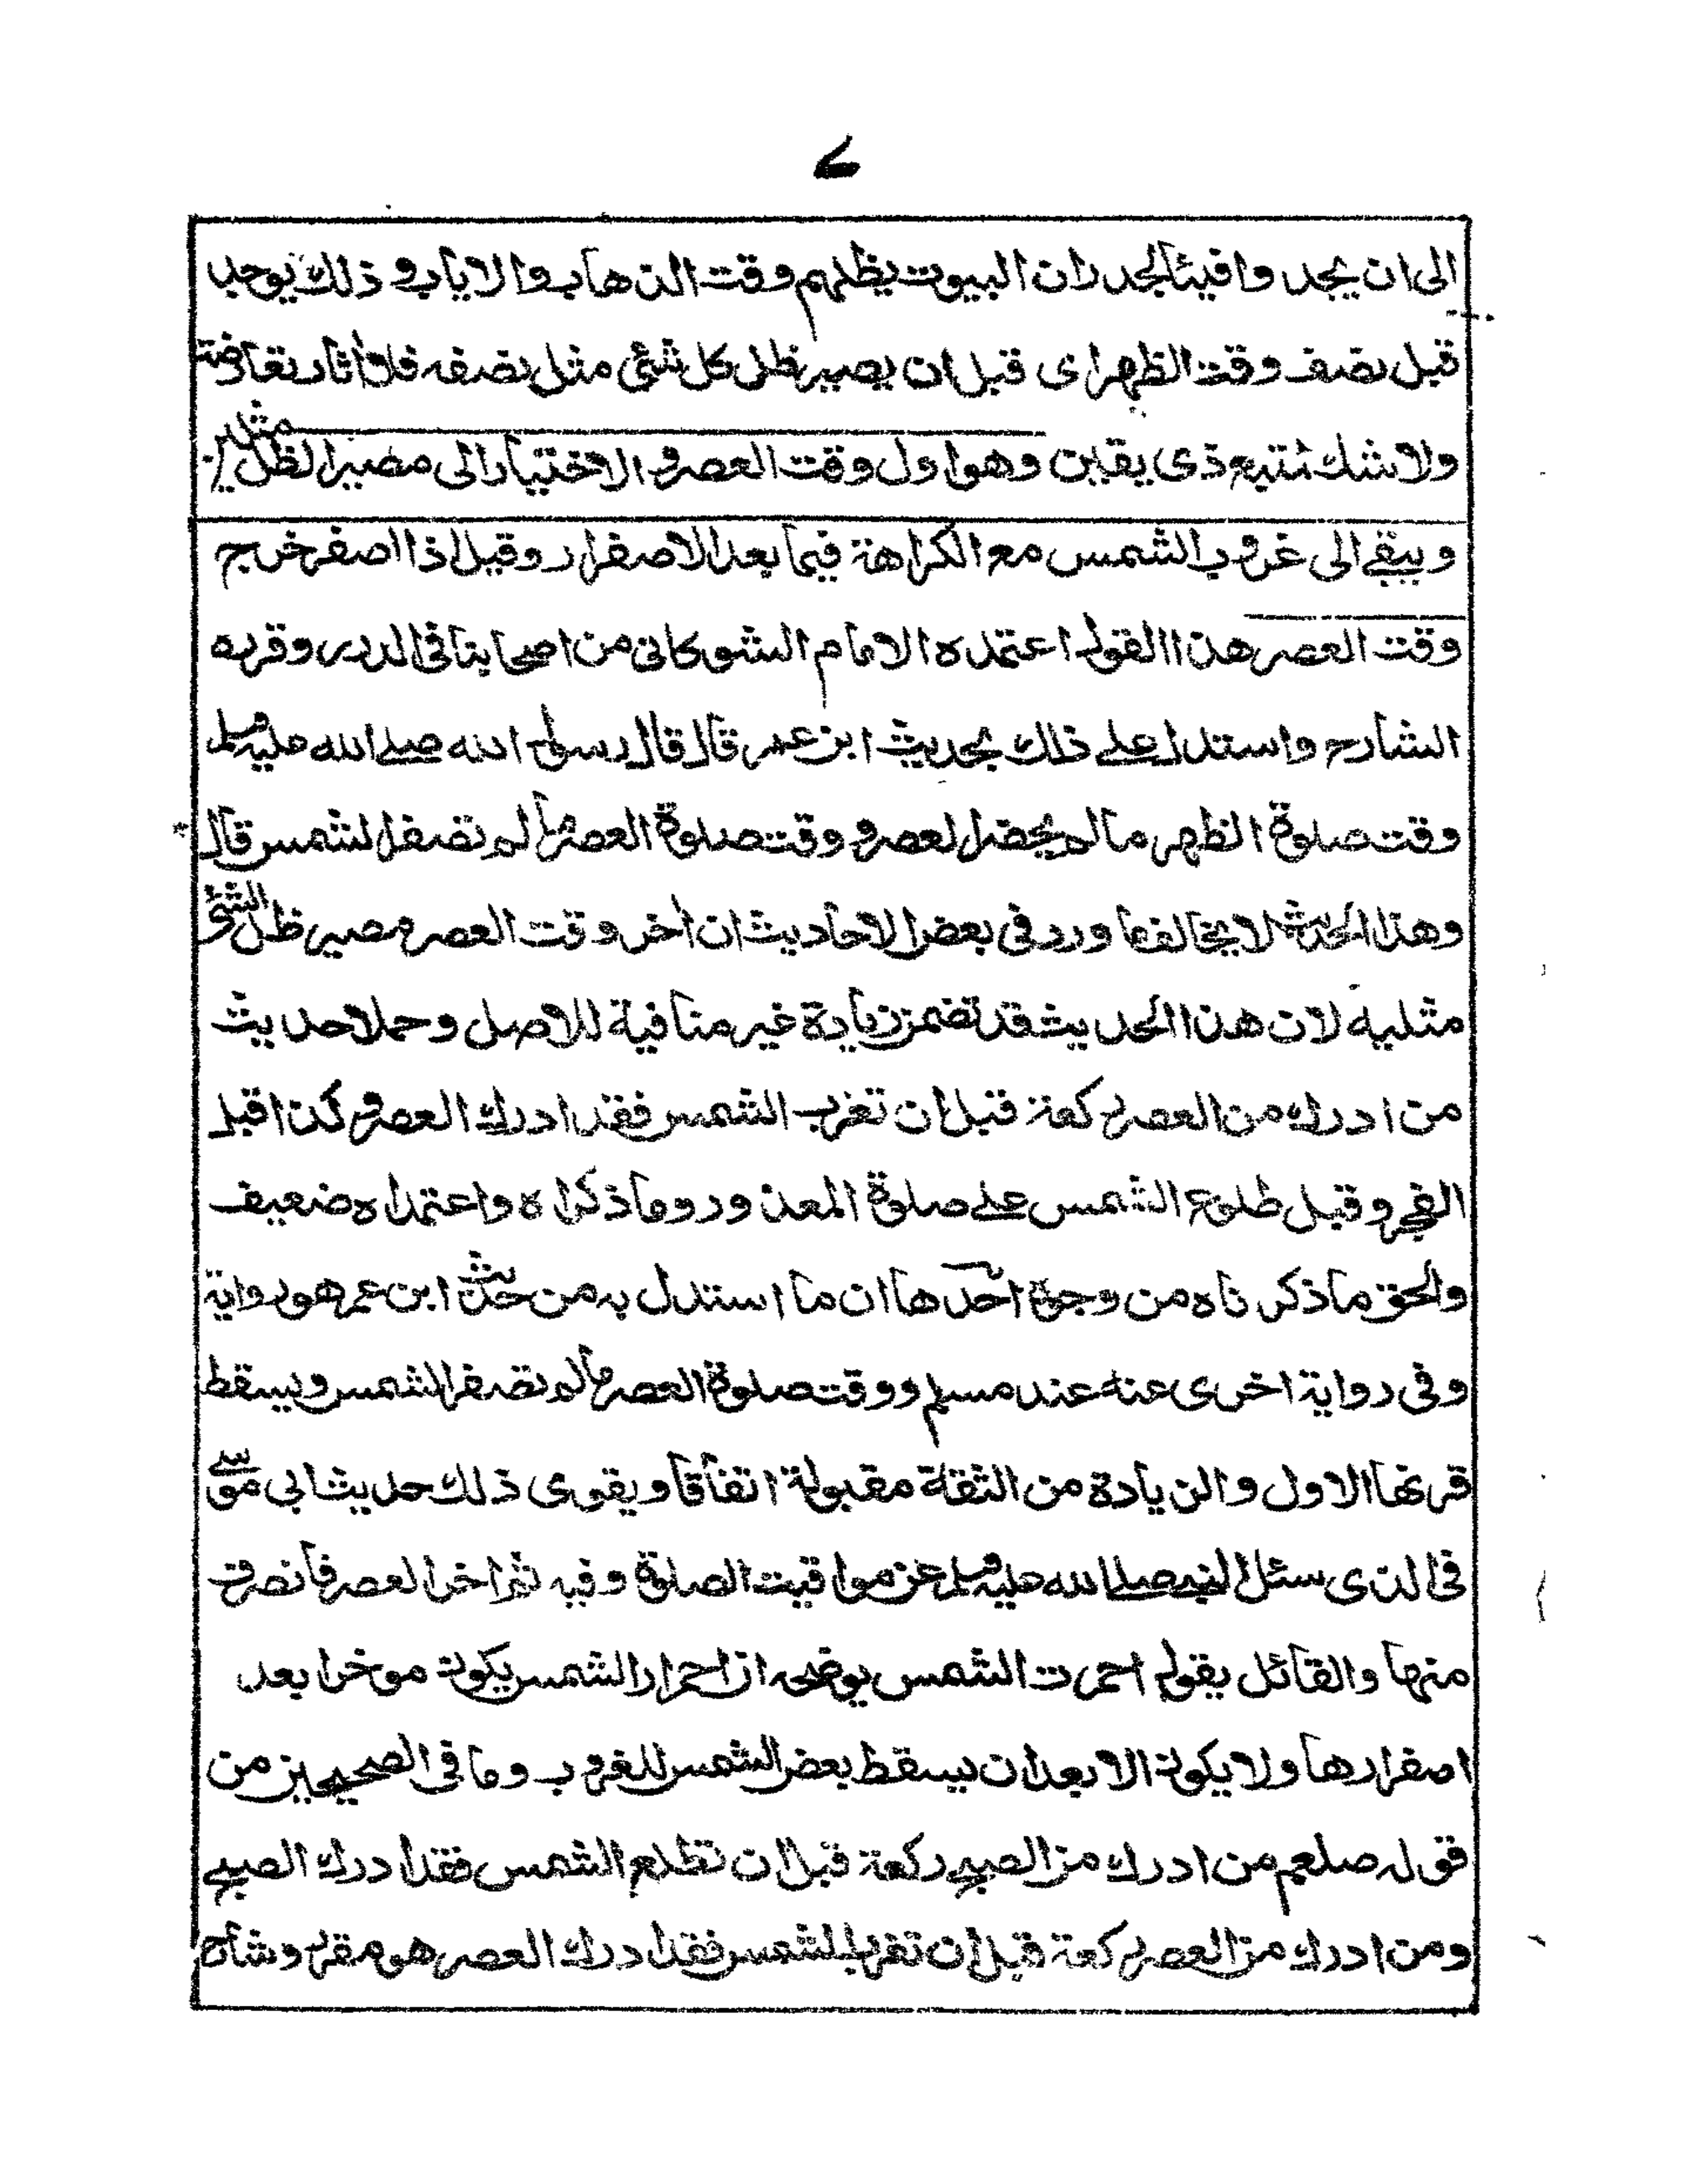 ۷
الى ان يجدوا فيئا لجدران البيوت يظلهم وقت الذهاب والاياب وذلك يوجد
قبل نصف وقت الظهر اى قبل ان يصير ظل كل شئ مثل نصفه فلا اثار تعارضة
ولا شك ذى يقين وهو اول وقت العصر و الاختيار الى مصير الظل مثلين
ويبقے الى غروب الشمس مع الكراهة فيما بعد الاصفرار وقيل اذا اصفر خرج
وقت العصر هذا القول اعتمده الامام الشوكانى من اصحابنا فى الدرر وقربه
الشارح واستدل علے ذلك بحديث ابن عمر قال قال رسول الله صلے الله عليه وسلم
وقت صلوة الظهر ما لم يحضر العصر و وقت صلوة العصر ما لم تصفر الشمس قال
وهذا الحديث لا يخالف ما ورد فى بعض الاحاديث ان اخر وقت العصر مصير ظل الشئ
مثليه لان هذا الحديث قد تضمن زيادة غير منافية للاصل وحملا حديث
من ادرك من العصر ركعة قبل ان تغرب الشمس فقد ادرك العصر و كذا قبل
الفجر وقبل طلوع الشمس علے صلوة المعذور وما ذكراه واعتمداه ضعيف
والحق ما ذكرناه من وجوة احدها ان ما استدل به من حديث ابن عمر هو رواية
وفى رواية اخرى عنه عند مسلم ووقت صلوة العصر ما لم تصفر الشمس ويسقط
قرنها الاول والزيادة من الثقة مقبولة اتفاقا ويقوى ذلك حديث ابى موسے
فى الذى سئل النبے صلے الله عليه وسلم عن مواقيت الصلوة وفيه ثم اخر العصر فانصرف
منها والقائل يقول احمرت الشمس يوضحه ان احمرار الشمس يكون موخرا بعد
اصفرارها ولا يكون الا بعد ان يسقط بعض الشمس للغروب وما فى الصحيحين من
قوله صلعم من ادرك من الصبح ركعة قبل ان تطلع الشمس فقد ادرك الصبح
ومن ادرك من العصر ركعة قبل ان تغرب الشمس فقد ادرك العصر هو مقرر وشارح